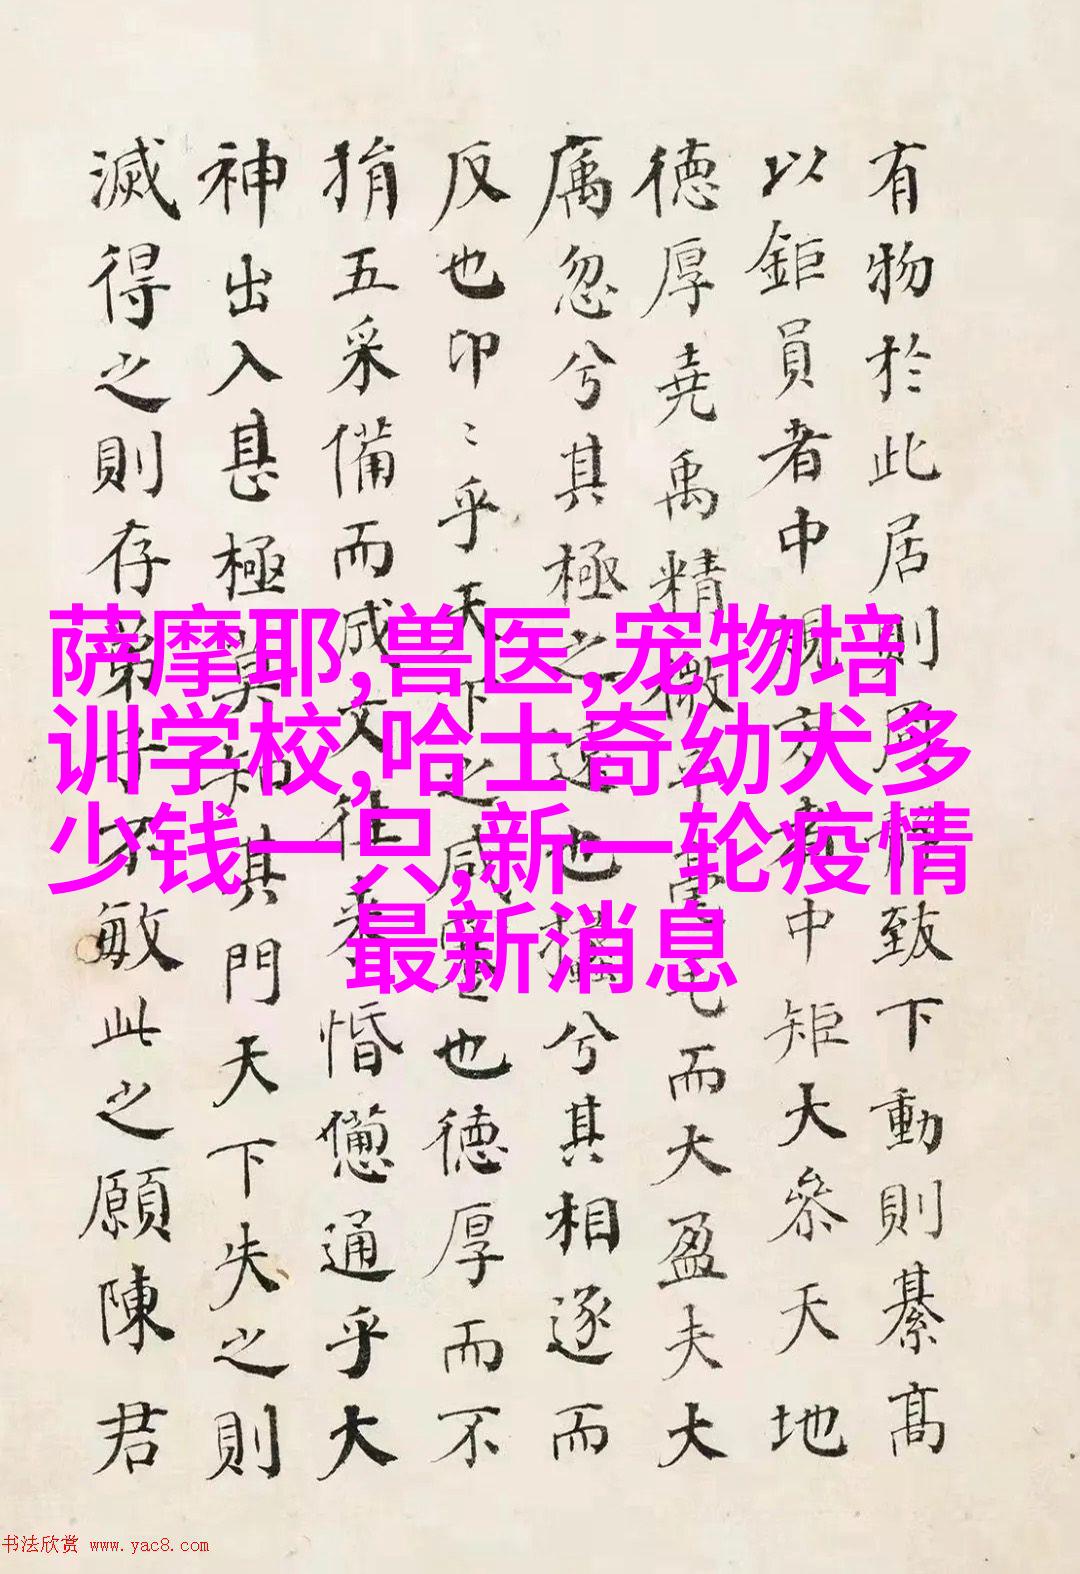 有物於此居則周静致下動則綦高
以鉅員者中規方者中矩大参天地
德厚堯禹精微乎毫毛而大盈夫大
厲忽兮其極之遠也攭兮其相逐而
反也卬〻乎天下之咸蹇也德厚而不
捐五采備而成文往来惛憊通乎大
神出入甚極莫知其門天下失之則
滅得之則存弟子不敏此之願陳君
萨摩耶,兽医,宠物培
训学校,哈士奇幼犬多
少钱一只,新一轮疫情
最新消息
书法欣赏 www.yac8.com